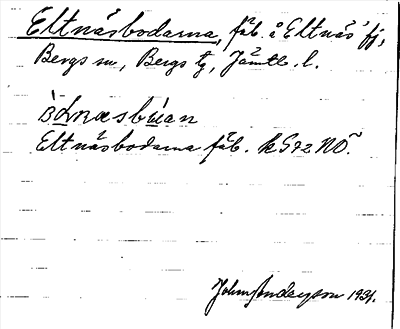 Eltnäsbodarna, fäb. å Eltnäs' fj,
Bergs sn, Bergs tg, Jämtl. l.
ödnæsbúan
Eltnäsbodarna fäb. k S72 NÖ.
John Anderson 1931.